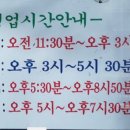 업시간안내-
: 오전 11:30분~오후 3시
: 오후 3시~5시 30분
: 오후5:30분~오후8시
: 오후 5시~오후7시30분